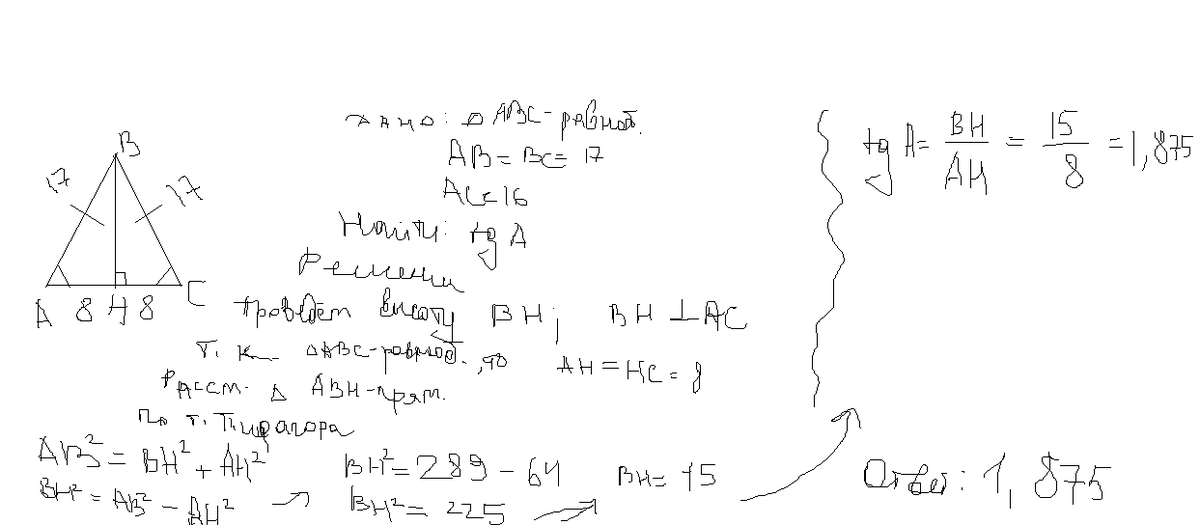 B
17 17
A 8 H 8 C
Дано: △ ABC-равноб.
AB = BC = 17
AC = 16
Найти: tg A
Решение
Проведём высоту BH; BH ⊥ AC
Т. к. △ABC-равноб., то AH = HC = 8
Рассм. △ ABH-прям.
По т. Пифагора
AB² = BH² + AH²
BH² = AB² - AH²
BH² = 289 - 64
BH² = 225
BH = 15
tg A = BH/AH = 15/8 = 1,875
Ответ: 1,875